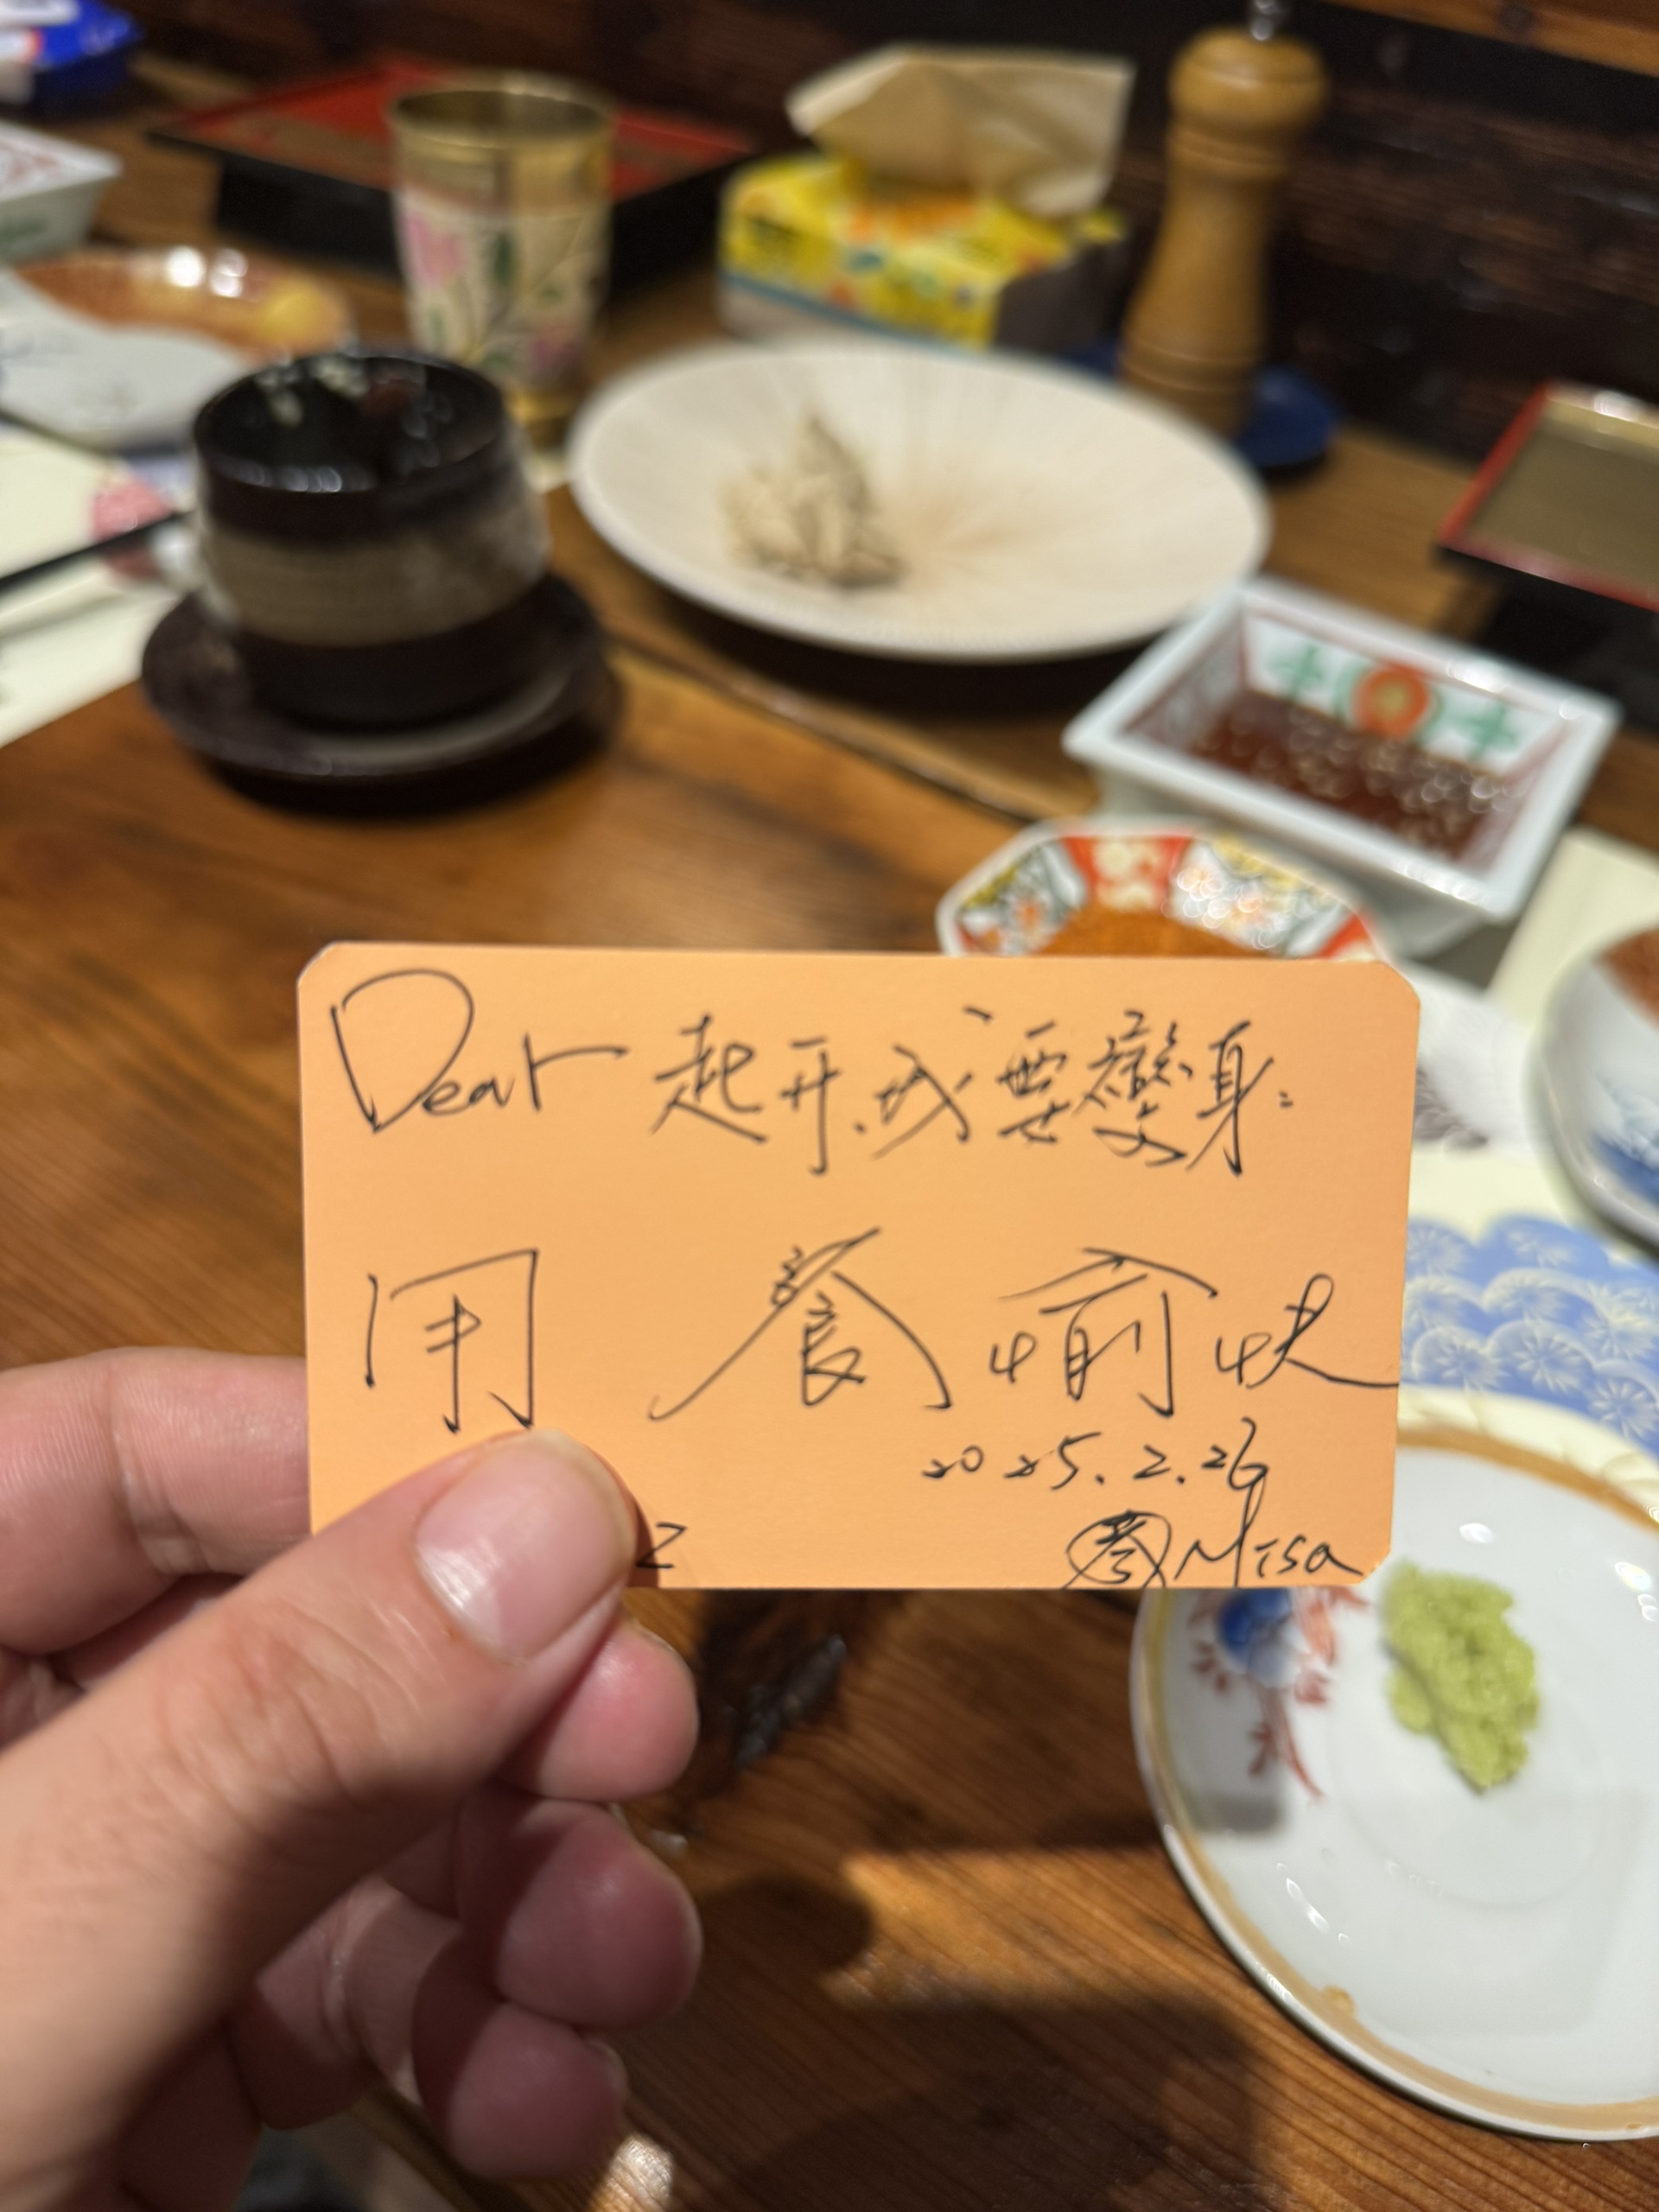 Dear 起开.我要變身:
用餐愉快
2025.2.26
Misa
Z